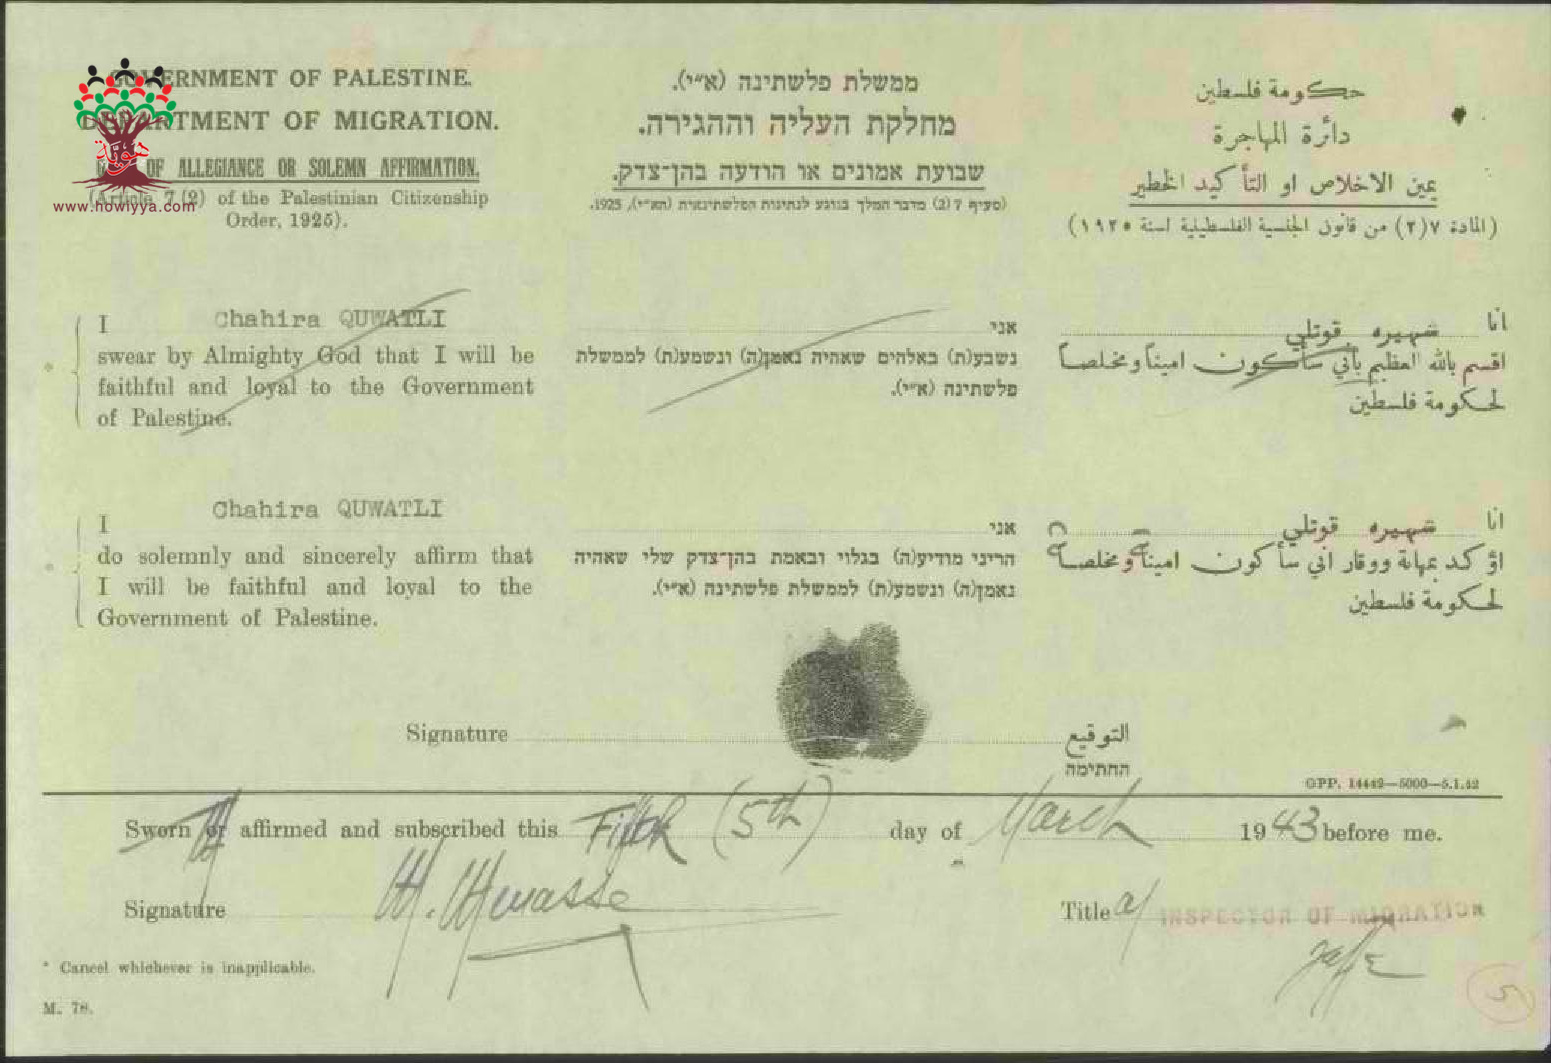 GOVERNMENT OF PALESTINE.
DEPARTMENT OF MIGRATION.
OF ALLEGIANCE OR SOLEMN AFFIRMATION.
(Article 7 (2) of the Palestinian Citizenship
Order, 1925).
هوية
www.howiyya.com
ממשלת פלשתינה (א״י).
מחלקת העליה וההגירה.
שבועת אמונים או הודעה בהן־צדק.
(סעיף 7 (2) מדבר המלך בנוגע לנתינות הפלשתינאית (הא״י), 1925.
حكومة فلسطين
دائرة المهاجرة
يمين الاخلاص او التأكيد الخطير
(المادة ٧(٢) من قانون الجنسية الفلسطينية لسنة ١٩٢٥)
I Chahira QUWATLI
swear by Almighty God that I will be
faithful and loyal to the Government
of Palestine.
אני
נשבע(ת) באלהים שאהיה נאמן(ה) ונשמע(ת) לממשלת
פלשתינה (א״י).
انا شهيره قوتلي
اقسم بالله العظيم بأني سأكون اميناً ومخلصاً
لحكومة فلسطين
* I Chahira QUWATLI
do solemnly and sincerely affirm that
I will be faithful and loyal to the
Government of Palestine.
אני
הריני מודיע(ה) בגלוי ובאמת בהן־צדק שלי שאהיה
נאמן(ה) ונשמע(ת) לממשלת פלשתינה (א״י).
انا شهيره قوتلي
اؤكد بمهابة ووقار اني سأكون امينة ومخلصة
لحكومة فلسطين
Signature التوقيع
החתימה
GPP. 14449—5000—5.1.42
Sworn or affirmed and subscribed this Fifth (5th) day of March 1943 before me.
Signature
Title a/ INSPECTOR OF MIGRATION
* Cancel whichever is inapplicable.
M. 78.
5